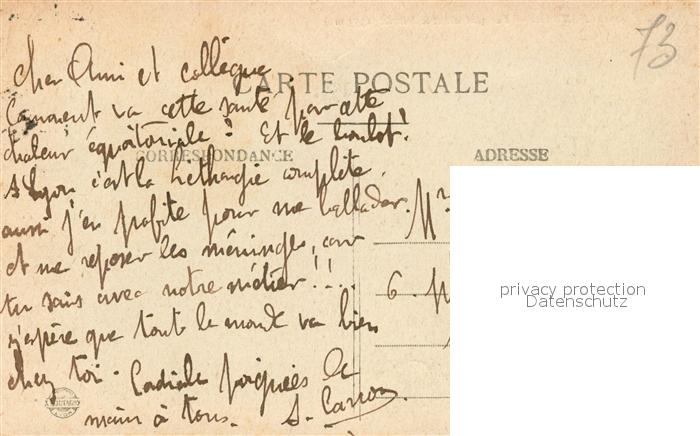 73
Cher Ami et collègue
CARTE POSTALE
Comment va cette santé par cette
chaleur équatoriale? Et le boulot?
CORRESPONDANCE
ADRESSE
A Lyon c'est la léthargie complète,
aussi j'en profite pour me ballader
Mr
et me reposer les méninges, car
privacy protection
Datenschutz
6
tu sais avec notre métier!!...
j'espère que tout le monde va bien
chez toi. Cordiale poignées de
main à tous. S. Carron